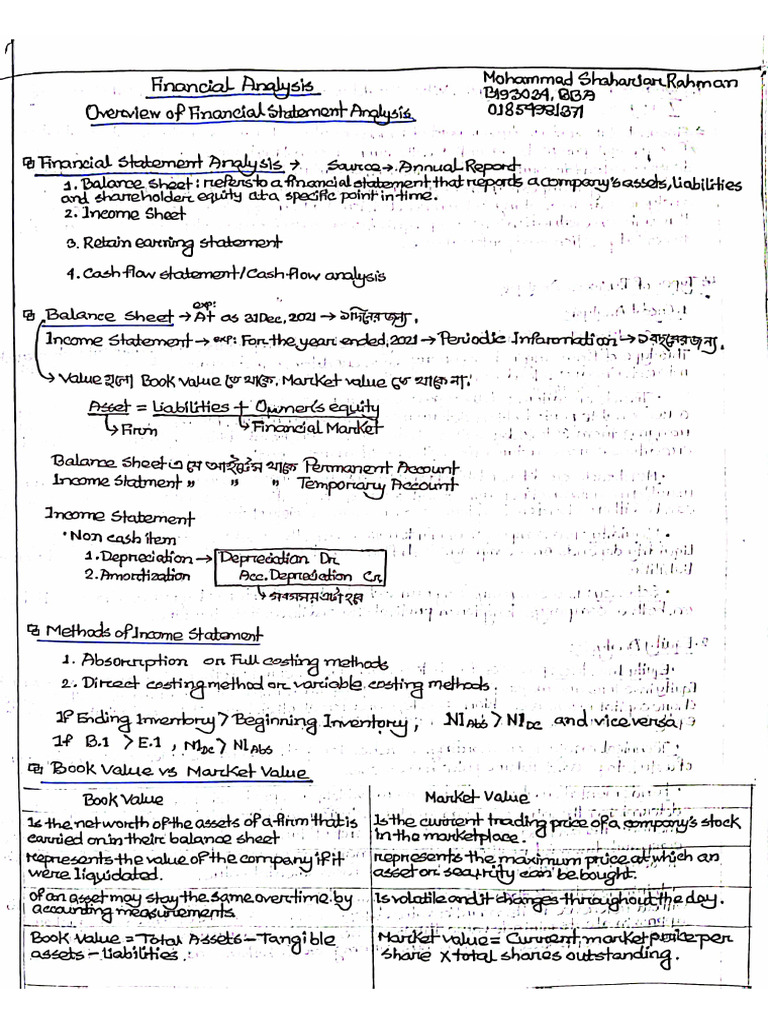 Financial Analysis
Overview of Financial Statement Analysis
Mohammad Shahariar Rahman
B193024, BBA
01859981371
Financial Statement Analysis → Source → Annual Report
1. Balance sheet: refers to a financial statement that reports a company's assets, liabilities
and shareholder equity at a specific point in time.
2. Income Sheet
3. Retain earning statement
4. Cash flow statement/Cash flow analysis
exp:
Balance Sheet → At as 31 Dec, 2021 → ১দিনের জন্য,
Income Statement → exp: For the year ended, 2021 → Periodic Information → ১ বছরের জন্য,
→ Value হলো Book value তে থাকে, Market value তে থাকে না।
Asset = Liabilities + Owner's equity
↳ Firm ↳ Financial Market
Balance Sheet এ যে আইটেম থাকে Permanent Account
Income Statment " " " Temporary Account
Income Statement
• Non cash item
1. Depreciation → Depreciation Dr
2. Amortization Acc. Depreciation Cr
↳ সবসময় এটা হয়
Methods of Income Statement
1. Absorrption or Full costing methods
2. Direct costing method or variable costing methods.
If Ending Inventory > Beginning Inventory, NI Abs > NI DC and vice versa,
If B.I > E.I, NI DC > NI Abs
Book Value vs Market Value
Book Value
Market Value
Is the net worth of the assets of a firm that is
carried on in their balance sheet
Is the current trading price of a company's stock
in the marketplace.
represents the value of the company if it
were liquidated.
represents the maximum price at which an
asset or security can be bought.
of an asset may stay the same overtime by
accounting measurements
Is volatile and it changes throughout the day.
Book Value = Total Assets - Tangible
assets - liabilities.
Market value = Current, market price per
share X total shares outstanding.